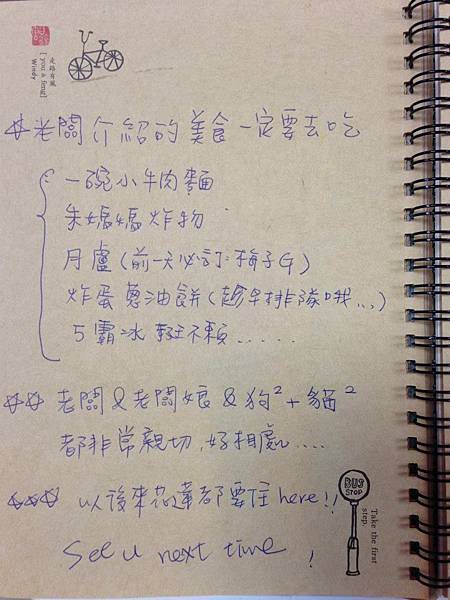 走路有風
[ you a fong]
Windy
☆老闆介紹的美食一定要去吃
一碗小牛肉麵
朱媽媽炸物
月廬(前一天必訂:梅子G)
炸蛋蔥油餅(趁早排隊哦...)
5霸冰 不賴......
☆☆ 老闆&老闆娘&狗²+貓²
都非常親切,好相處....
☆☆☆ 以後來花蓮都要住here!!
See u next time !
BUS
STOP
Take the first
step.